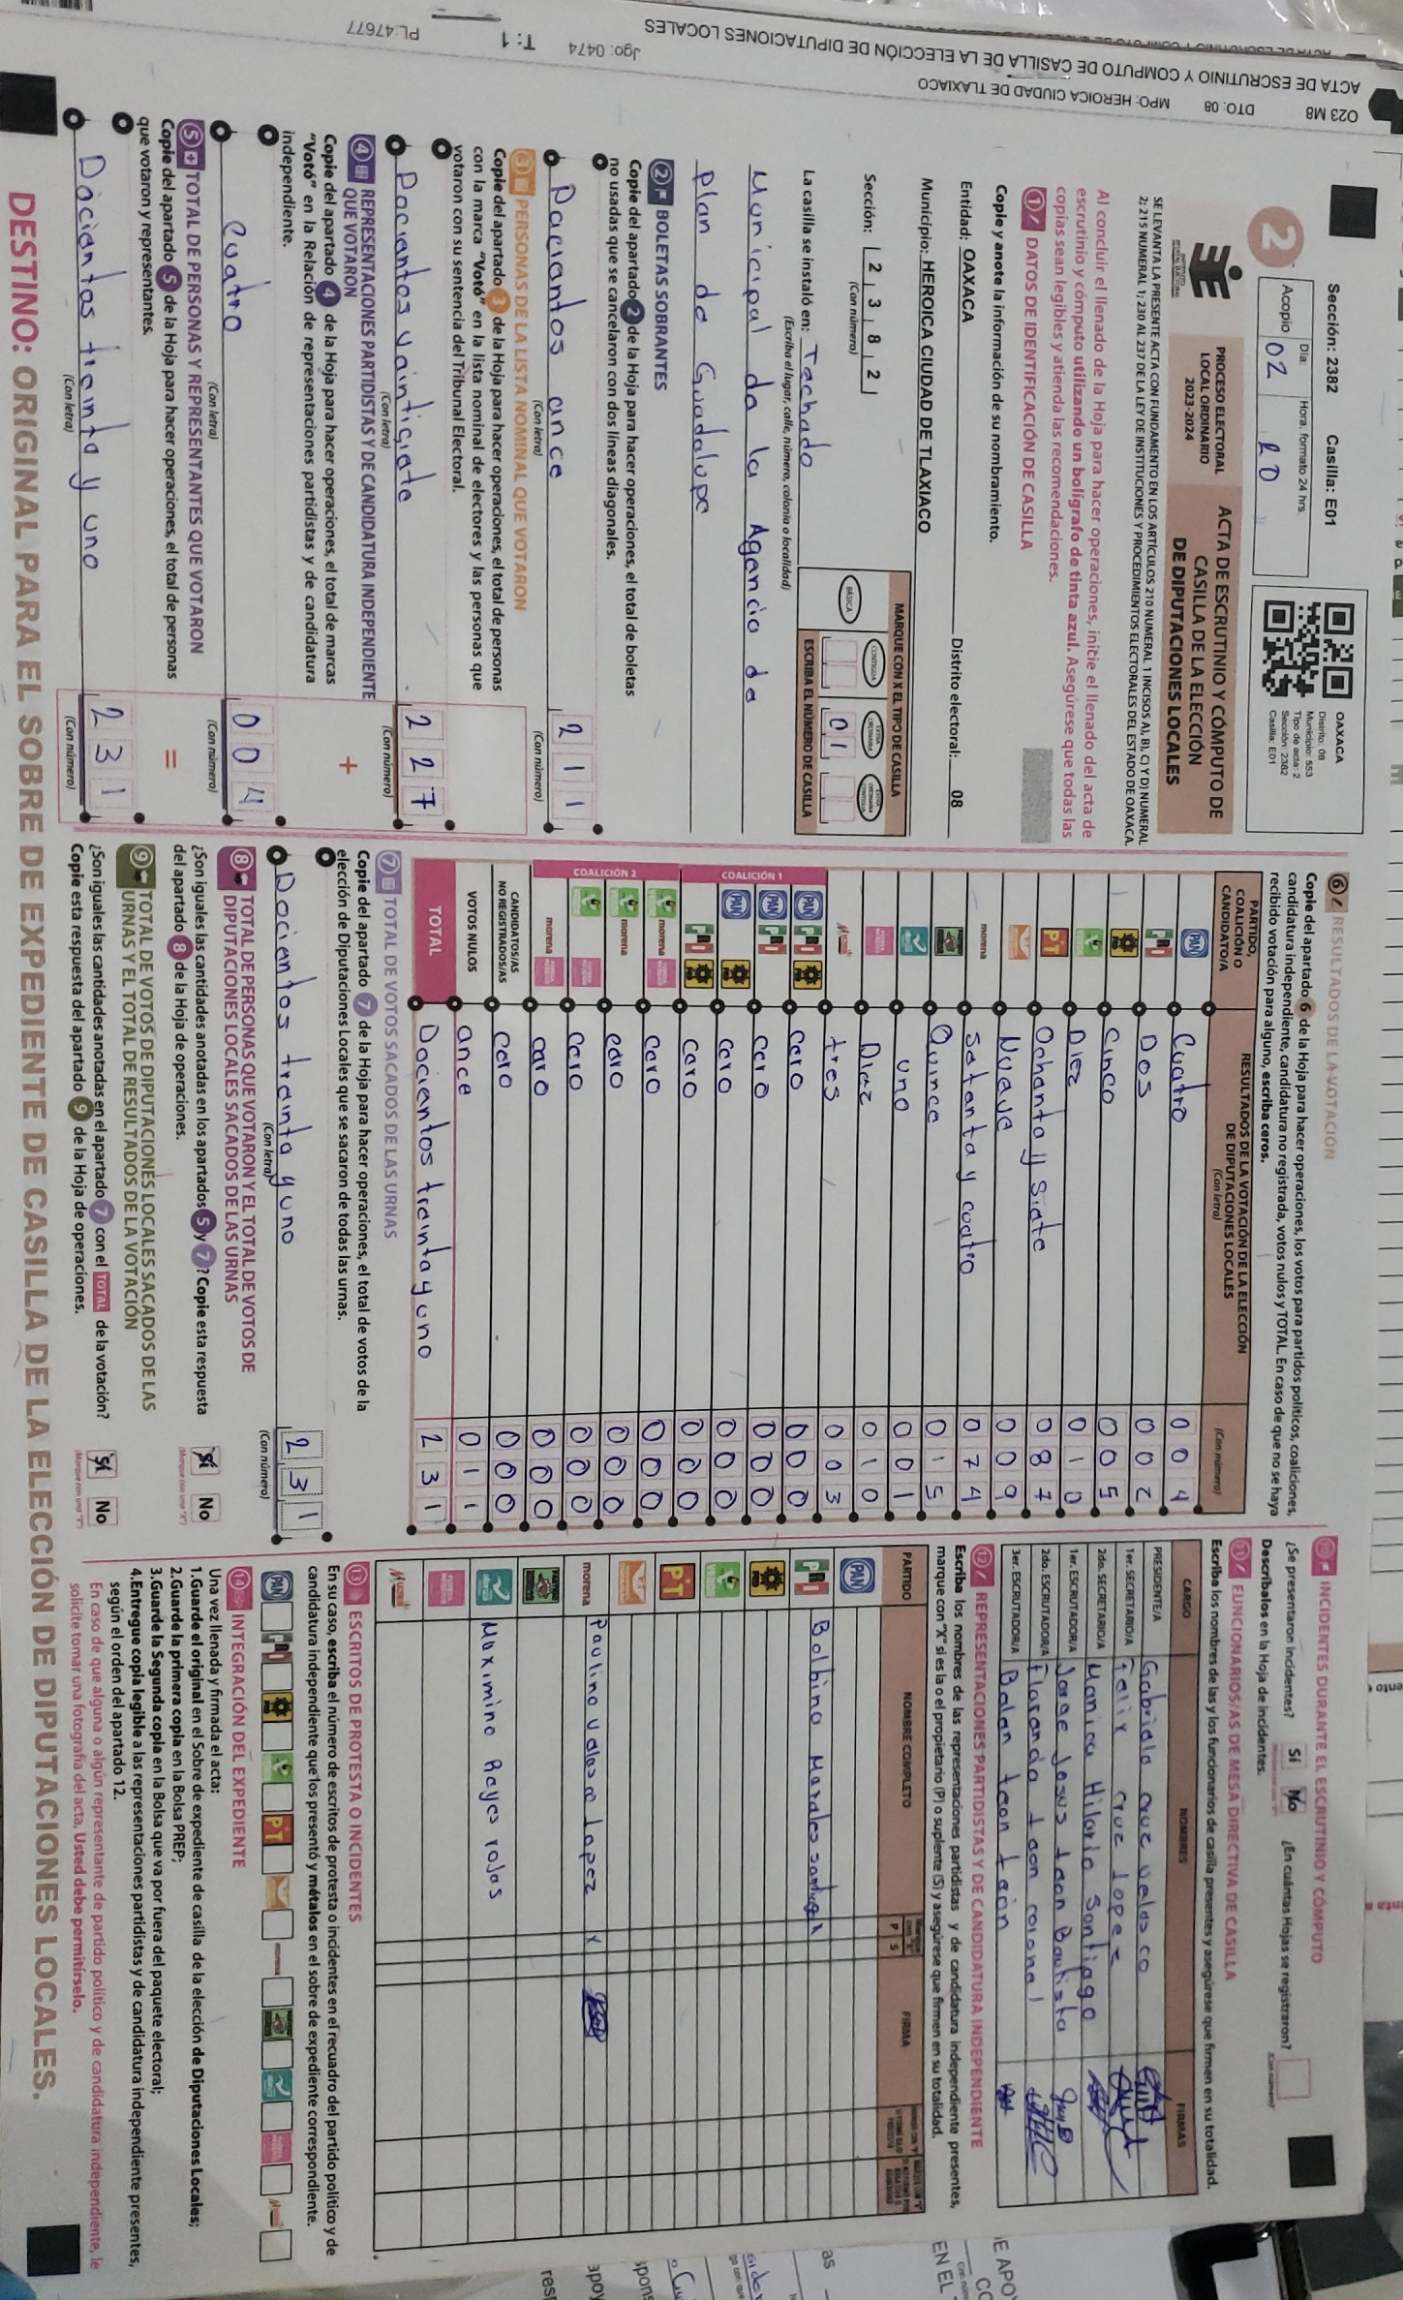 ACTA DE ESCRUTINIO Y COMPUTO DE CASILLA DE LA ELECCIÓN DE DIPUTACIONES LOCALES
O23 M8 DTO: 08 MPO: HEROICA CIUDAD DE TLAXIACO Jgo: 0474 T: 1 PL:47677
Sección: 2382 Casilla: E01
2
Acopio Día: Hora, formato 24 hrs.
02 20
OAXACA
Distrito: 08
Municipio: 553
Tipo de acta: 2
Sección: 2382
Casilla: E01
PROCESO ELECTORAL
LOCAL ORDINARIO
2023-2024
ACTA DE ESCRUTINIO Y CÓMPUTO DE
CASILLA DE LA ELECCIÓN
DE DIPUTACIONES LOCALES
SE LEVANTA LA PRESENTE ACTA CON FUNDAMENTO EN LOS ARTÍCULOS 210 NUMERAL 1 INCISOS A), B), C) Y D) NUMERAL
2; 215 NUMERAL 1; 230 AL 237 DE LA LEY DE INSTITUCIONES Y PROCEDIMIENTOS ELECTORALES DEL ESTADO DE OAXACA.
Al concluir el llenado de la Hoja para hacer operaciones, inicie el llenado del acta de
escrutinio y cómputo utilizando un bolígrafo de tinta azul. Asegúrese que todas las
copias sean legibles y atienda las recomendaciones.
1 DATOS DE IDENTIFICACIÓN DE CASILLA
Copie y anote la información de su nombramiento.
Entidad: OAXACA Distrito electoral: 08
Municipio: HEROICA CIUDAD DE TLAXIACO
Sección: 2 3 8 2
(Con número)
MARQUE CON X EL TIPO DE CASILLA
BÁSICA CONTIGUA
ESCRIBA EL NÚMERO DE CASILLA
01
La casilla se instaló en: Techado
(Escriba el lugar, calle, número, colonia o localidad)
Municipal de la Agencia de
Plan de Guadalupe
2 BOLETAS SOBRANTES
Copie del apartado 2 de la Hoja para hacer operaciones, el total de boletas
no usadas que se cancelaron con dos líneas diagonales.
Docientos once 2 1 1
(Con letra) (Con número)
3 PERSONAS DE LA LISTA NOMINAL QUE VOTARON
Copie del apartado 3 de la Hoja para hacer operaciones, el total de personas
con la marca "Votó" en la lista nominal de electores y las personas que
votaron con su sentencia del Tribunal Electoral.
Docientos veinticiete 2 2 7
(Con letra) (Con número)
4 REPRESENTACIONES PARTIDISTAS Y DE CANDIDATURA INDEPENDIENTE
QUE VOTARON
+
Copie del apartado 4 de la Hoja para hacer operaciones, el total de marcas
"Votó" en la Relación de representaciones partidistas y de candidatura
independiente.
cuatro 0 0 4
(Con letra) (Con número)
5 TOTAL DE PERSONAS Y REPRESENTANTES QUE VOTARON
=
Copie del apartado 5 de la Hoja para hacer operaciones, el total de personas
que votaron y representantes.
Docientos treinta y uno 2 3 1
(Con letra) (Con número)
6 RESULTADOS DE LA VOTACIÓN
Copie del apartado 6 de la Hoja para hacer operaciones, los votos para partidos políticos, coaliciones,
candidatura independiente, candidatura no registrada, votos nulos y TOTAL. En caso de que no se haya
recibido votación para alguno, escriba ceros.
PARTIDO,
COALICIÓN O
CANDIDATO/A
RESULTADOS DE LA VOTACIÓN DE LA ELECCIÓN
DE DIPUTACIONES LOCALES
(Con letra) (Con número)
PAN Cuatro 0 0 4
PRI Dos 0 0 2
Cinco 0 0 5
Diez 0 1 0
PT Ochenta y siete 0 8 7
Nueve 0 0 9
morena Setenta y cuatro 0 7 4
Quince 0 1 5
uno 0 0 1
Diez 0 1 0
tres 0 0 3
COALICIÓN 1
PAN PRI cero 0 0 0
PAN PRI cero 0 0 0
PAN cero 0 0 0
PRI cero 0 0 0
COALICIÓN 2
morena cero 0 0 0
morena cero 0 0 0
cero 0 0 0
morena cero 0 0 0
CANDIDATOS/AS
NO REGISTRADOS/AS cero 0 0 0
VOTOS NULOS once 0 1 1
TOTAL Docientos treinta y uno 2 3 1
7 TOTAL DE VOTOS SACADOS DE LAS URNAS
Copie del apartado 7 de la Hoja para hacer operaciones, el total de votos de la
elección de Diputaciones Locales que se sacaron de todas las urnas.
Docientos treinta y uno 2 3 1
(Con letra) (Con número)
8 TOTAL DE PERSONAS QUE VOTARON Y EL TOTAL DE VOTOS DE
DIPUTACIONES LOCALES SACADOS DE LAS URNAS
¿Son iguales las cantidades anotadas en los apartados 5 y 7? Copie esta respuesta
del apartado 8 de la Hoja de operaciones.
Sí No
9 TOTAL DE VOTOS DE DIPUTACIONES LOCALES SACADOS DE LAS
URNAS Y EL TOTAL DE RESULTADOS DE LA VOTACIÓN
¿Son iguales las cantidades anotadas en el apartado 7 con el TOTAL de la votación?
Copie esta respuesta del apartado 9 de la Hoja de operaciones.
Sí No
10 INCIDENTES DURANTE EL ESCRUTINIO Y CÓMPUTO
¿Se presentaron incidentes? Sí No ¿En cuántas Hojas se registraron?
Descríbalos en la Hoja de incidentes.
11 FUNCIONARIOS/AS DE MESA DIRECTIVA DE CASILLA
Escriba los nombres de las y los funcionarios de casilla presentes y asegúrese que firmen en su totalidad.
CARGO NOMBRES FIRMAS
PRESIDENTE/A Gabriela cruz velasco
1er. SECRETARIO/A Felix cruz Lopez
2do. SECRETARIO/A Monica Hilario Santiago
1er. ESCRUTADOR/A Jorge Jesus leon Bautista
2do. ESCRUTADOR/A Florencia Leon coronel
3er. ESCRUTADOR/A Belen leon leon
12 REPRESENTACIONES PARTIDISTAS Y DE CANDIDATURA INDEPENDIENTE
Escriba los nombres de las representaciones partidistas y de candidatura independiente presentes,
marque con "X" si es la o el propietario (P) o suplente (S) y asegúrese que firmen en su totalidad.
PARTIDO NOMBRE COMPLETO P S FIRMA
PAN
PRI Balbina Morales
PT
morena Paulino velasco Lopez X
Maximino Reyes rojas
13 ESCRITOS DE PROTESTA O INCIDENTES
En su caso, escriba el número de escritos de protesta o incidentes en el recuadro del partido político y de
candidatura independiente que los presentó y métalos en el sobre de expediente correspondiente.
PAN PRI PT morena
14 INTEGRACIÓN DEL EXPEDIENTE
Una vez llenada y firmada el acta:
1.Guarde el original en el Sobre de expediente de casilla de la elección de Diputaciones Locales;
2.Guarde la primera copia en la Bolsa PREP;
3.Guarde la Segunda copia en la Bolsa que va por fuera del paquete electoral;
4.Entregue copia legible a las representaciones partidistas y de candidatura independiente presentes,
según el orden del apartado 12.
En caso de que alguna o algún representante de partido político y de candidatura independiente, le
solicite tomar una fotografía del acta, Usted debe permitírselo.
DESTINO: ORIGINAL PARA EL SOBRE DE EXPEDIENTE DE CASILLA DE LA ELECCIÓN DE DIPUTACIONES LOCALES.